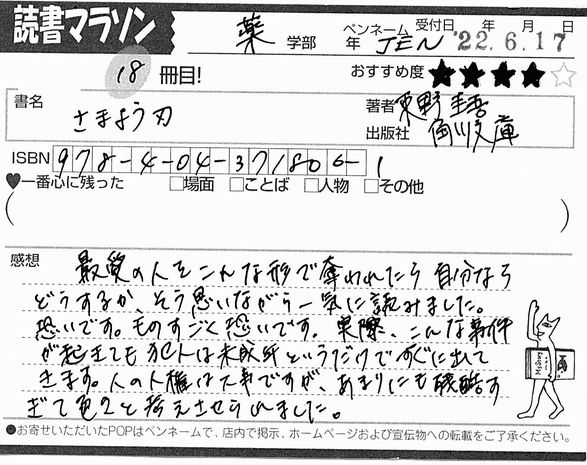 読書マラソン
薬 学部 年 ペンネーム JEN 受付日 '22年6月17日
18 冊目!
おすすめ度 ★★★★☆
書名 さまよう刃
著者 東野圭吾
出版社 角川文庫
ISBN 978-4-04-371806-1
♥一番心に残った □場面 □ことば □人物 □その他
( )
感想 最愛の人をこんな形で奪われたら自分なら
どうするか、そう思いながら一気に読みました。
恐いです。ものすごく恐いです。実際、こんな事件
が起きても犯人は未成年というだけですぐに出て
きます。人の人権は大事ですが、あまりにも残酷す
ぎて色々と考えさせられました。
●お寄せいただいたPOPはペンネームで、店内で掲示、ホームページおよび宣伝物への転載をご了承ください。